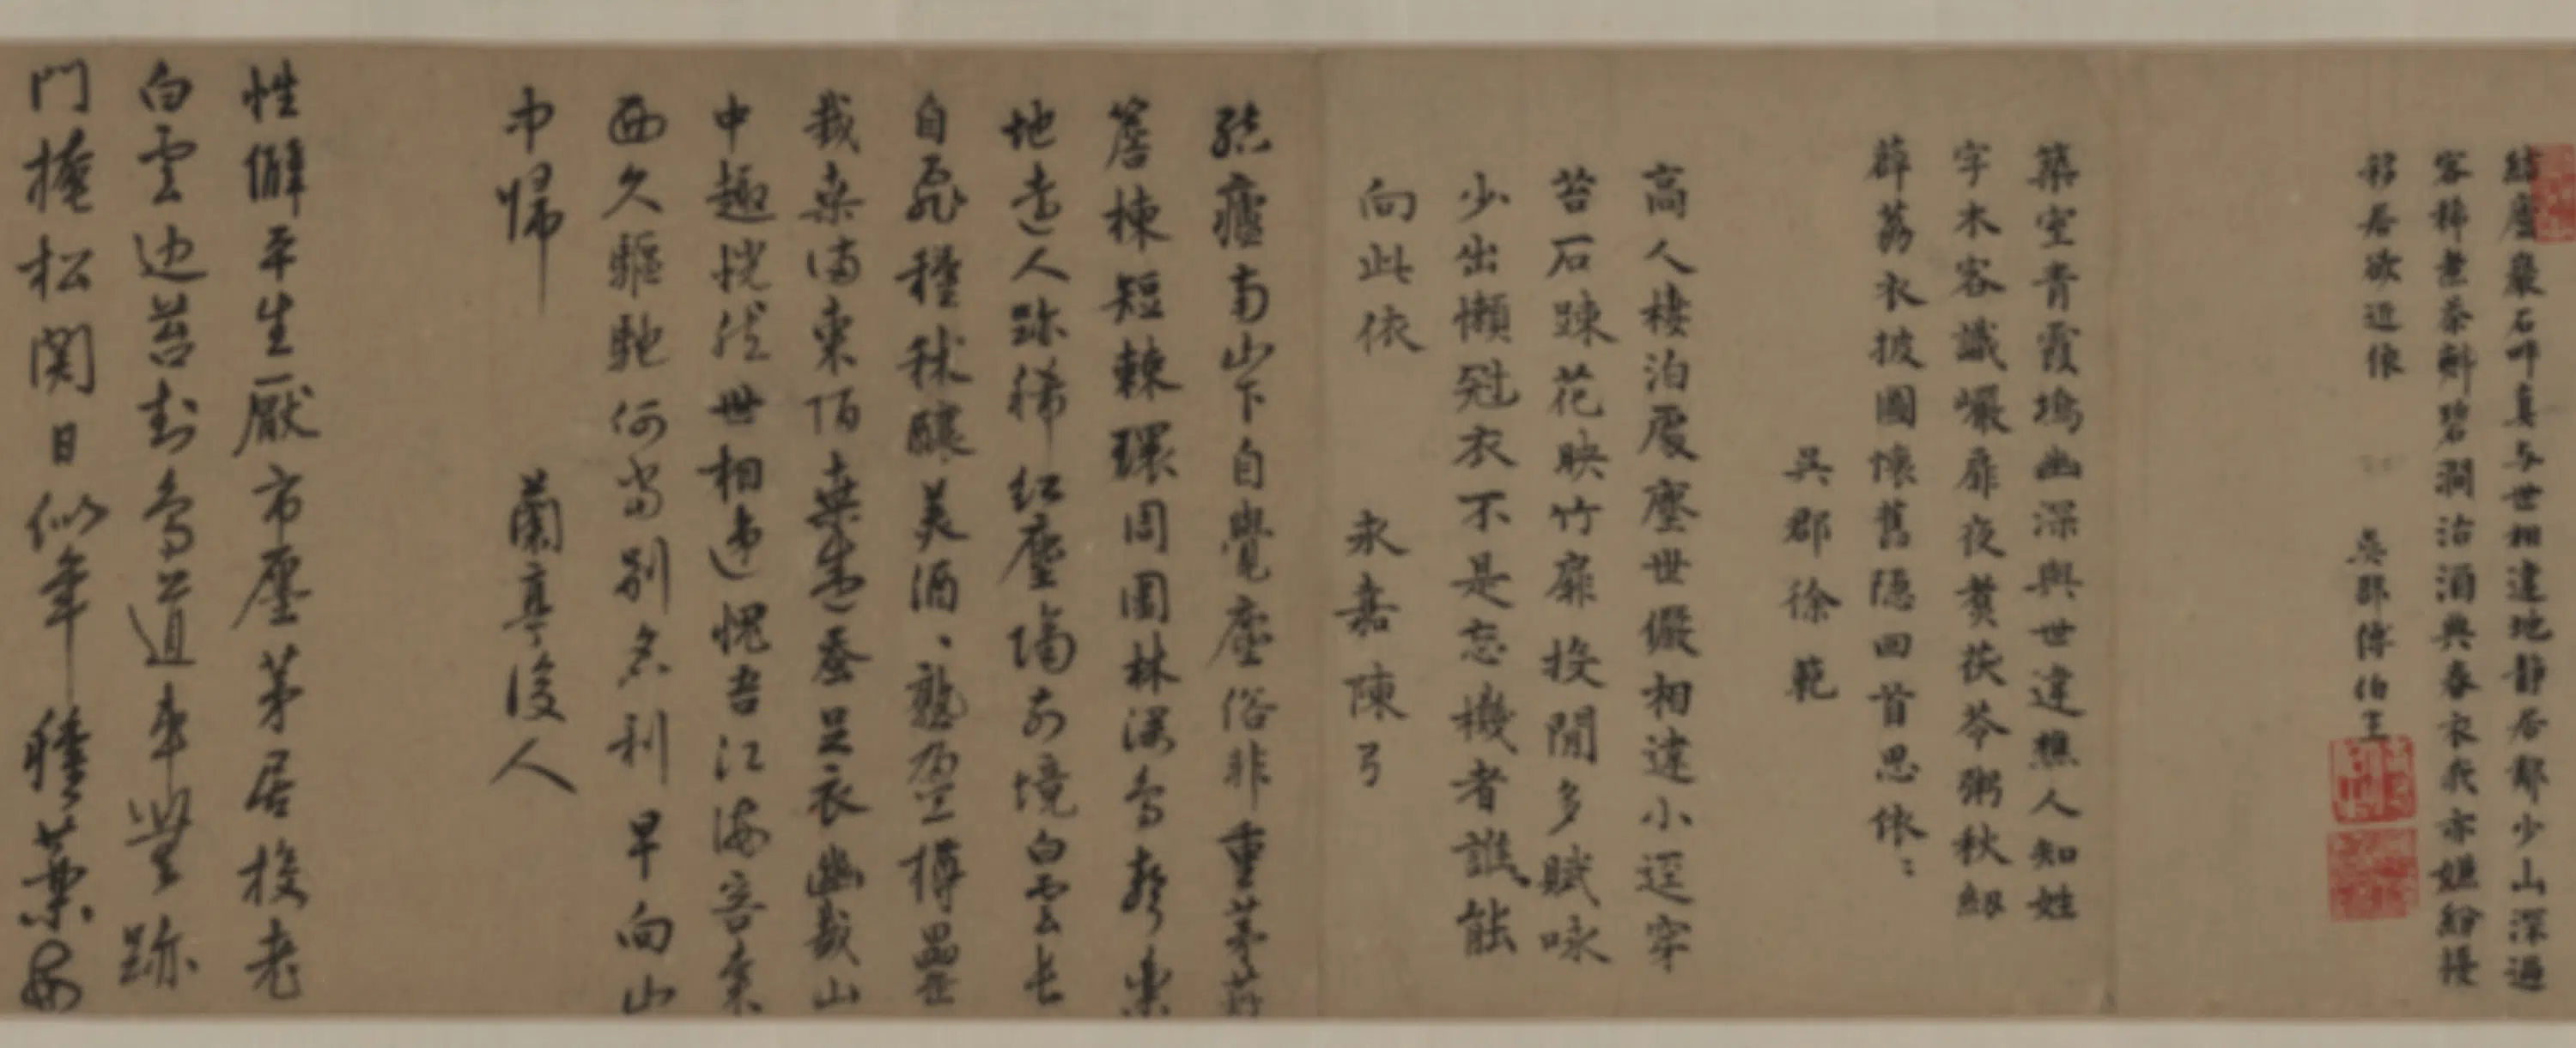 結廬巖石叩真与世相違地靜居鄰少山深過
客稀煮茶斟碧澗沽酒典春衣我亦嫌紛擾
移居欲近依
吳郡傅伯
築室青霞塢幽深與世違樵人知姓
字木客識巖扉夜煑茯苓粥秋紉
薜荔衣披圖懷舊隠回首思依:
吳郡徐範
高人棲泊處塵世儼相違小逕穿
苔石踈花映竹扉投閒多賦咏
少出懶冠衣不是忘機者誰能
向此依
永嘉陳弓
結廬南山下自覺塵俗非重茅葺
簷棟短棘環周圍林深鳥聲樂
地遠人跡稀紅塵隔前境白雲長
自飛種秫釀美酒、熟盈樽罍
栽桒滿東陌桒盛蠶足衣幽哉山
中趣恍然世相違愧吾江海客東
西久驅馳何當別名利早向山
中歸
蘭亭後人
性僻平生厭市塵茅居投老
白雲邊苔封鳥道車無跡
門掩松関日似年種藥